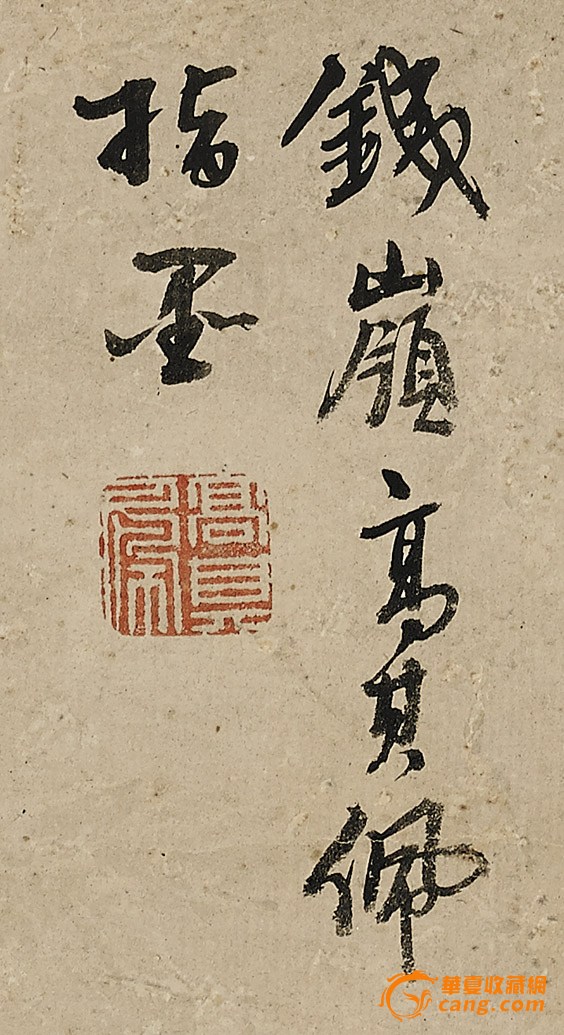 鐵嶺高其佩
指墨
高其佩
華夏收藏網
cang.com